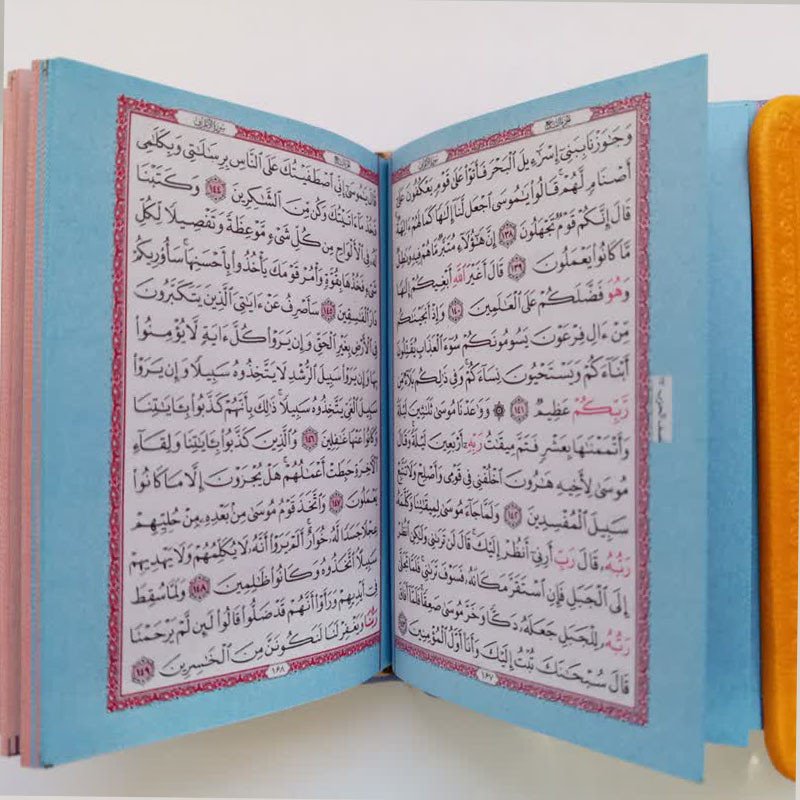 الجزء التاسع
سورة الأعراف
وَجَٰوَزْنَا بِبَنِىٓ إِسْرَٰٓءِيلَ ٱلْبَحْرَ فَأَتَوْا۟ عَلَىٰ قَوْمٍ يَعْكُفُونَ عَلَىٰٓ
أَصْنَامٍ لَّهُمْ ۚ قَالُوا۟ يَٰمُوسَى ٱجْعَل لَّنَآ إِلَٰهًا كَمَا لَهُمْ ءَالِهَةٌ ۚ
قَالَ إِنَّكُمْ قَوْمٌ تَجْهَلُونَ ١٣٨ إِنَّ هَٰٓؤُلَآءِ مُتَبَّرٌ مَّا هُمْ فِيهِ وَبَٰطِلٌ
مَّا كَانُوا۟ يَعْمَلُونَ ١٣٩ قَالَ أَغَيْرَ ٱللَّهِ أَبْغِيكُمْ إِلَٰهًا
وَهُوَ فَضَّلَكُمْ عَلَى ٱلْعَٰلَمِينَ ١٤٠ وَإِذْ أَنجَيْنَٰكُم
مِّنْ ءَالِ فِرْعَوْنَ يَسُومُونَكُمْ سُوٓءَ ٱلْعَذَابِ ۖ يُقَتِّلُونَ
أَبْنَآءَكُمْ وَيَسْتَحْيُونَ نِسَآءَكُمْ ۚ وَفِى ذَٰلِكُم بَلَآءٌ مِّن
رَّبِّكُمْ عَظِيمٌ ١٤١ ۞ وَوَٰعَدْنَا مُوسَىٰ ثَلَٰثِينَ لَيْلَةً
وَأَتْمَمْنَٰهَا بِعَشْرٍ فَتَمَّ مِيقَٰتُ رَبِّهِۦٓ أَرْبَعِينَ لَيْلَةً ۚ وَقَالَ
مُوسَىٰ لِأَخِيهِ هَٰرُونَ ٱخْلُفْنِى فِى قَوْمِى وَأَصْلِحْ وَلَا تَتَّبِعْ
سَبِيلَ ٱلْمُفْسِدِينَ ١٤٢ وَلَمَّا جَآءَ مُوسَىٰ لِمِيقَٰتِنَا وَكَلَّمَهُۥ
رَبُّهُۥ قَالَ رَبِّ أَرِنِىٓ أَنظُرْ إِلَيْكَ ۚ قَالَ لَن تَرَىٰنِى وَلَٰكِنِ ٱنظُرْ
إِلَى ٱلْجَبَلِ فَإِنِ ٱسْتَقَرَّ مَكَانَهُۥ فَسَوْفَ تَرَىٰنِى ۚ فَلَمَّا تَجَلَّىٰ
رَبُّهُۥ لِلْجَبَلِ جَعَلَهُۥ دَكًّا وَخَرَّ مُوسَىٰ صَعِقًا ۚ فَلَمَّآ أَفَاقَ
قَالَ سُبْحَٰنَكَ تُبْتُ إِلَيْكَ وَأَنَا۠ أَوَّلُ ٱلْمُؤْمِنِينَ ١٤٣
١٦٧
سورة الأعراف
قَالَ يَٰمُوسَىٰٓ إِنِّى ٱصْطَفَيْتُكَ عَلَى ٱلنَّاسِ بِرِسَٰلَٰتِى وَبِكَلَٰمِى
فَخُذْ مَآ ءَاتَيْتُكَ وَكُن مِّنَ ٱلشَّٰكِرِينَ ١٤٤ وَكَتَبْنَا
لَهُۥ فِى ٱلْأَلْوَاحِ مِن كُلِّ شَىْءٍ مَّوْعِظَةً وَتَفْصِيلًا لِّكُلِّ
شَىْءٍ فَخُذْهَا بِقُوَّةٍ وَأْمُرْ قَوْمَكَ يَأْخُذُوا۟ بِأَحْسَنِهَا ۚ سَأُو۟رِيكُمْ
دَارَ ٱلْفَٰسِقِينَ ١٤٥ سَأَصْرِفُ عَنْ ءَايَٰتِىَ ٱلَّذِينَ يَتَكَبَّرُونَ
فِى ٱلْأَرْضِ بِغَيْرِ ٱلْحَقِّ وَإِن يَرَوْا۟ كُلَّ ءَايَةٍ لَّا يُؤْمِنُوا۟
بِهَا وَإِن يَرَوْا۟ سَبِيلَ ٱلرُّشْدِ لَا يَتَّخِذُوهُ سَبِيلًا وَإِن يَرَوْا۟
سَبِيلَ ٱلْغَىِّ يَتَّخِذُوهُ سَبِيلًا ۚ ذَٰلِكَ بِأَنَّهُمْ كَذَّبُوا۟ بِـَٔايَٰتِنَا
وَكَانُوا۟ عَنْهَا غَٰفِلِينَ ١٤٦ وَٱلَّذِينَ كَذَّبُوا۟ بِـَٔايَٰتِنَا وَلِقَآءِ
ٱلْـَٔاخِرَةِ حَبِطَتْ أَعْمَٰلُهُمْ ۚ هَلْ يُجْزَوْنَ إِلَّا مَا كَانُوا۟
يَعْمَلُونَ ١٤٧ وَٱتَّخَذَ قَوْمُ مُوسَىٰ مِنۢ بَعْدِهِۦ مِنْ حُلِيِّهِمْ
عِجْلًا جَسَدًا لَّهُۥ خُوَارٌ ۚ أَلَمْ يَرَوْا۟ أَنَّهُۥ لَا يُكَلِّمُهُمْ وَلَا يَهْدِيهِمْ
سَبِيلًا ۘ ٱتَّخَذُوهُ وَكَانُوا۟ ظَٰلِمِينَ ١٤٨ وَلَمَّا سُقِطَ
فِىٓ أَيْدِيهِمْ وَرَأَوْا۟ أَنَّهُمْ قَدْ ضَلُّوا۟ قَالُوا۟ لَئِن لَّمْ يَرْحَمْنَا
رَبُّنَا وَيَغْفِرْ لَنَا لَنَكُونَنَّ مِنَ ٱلْخَٰسِرِينَ ١٤٩
١٦٨